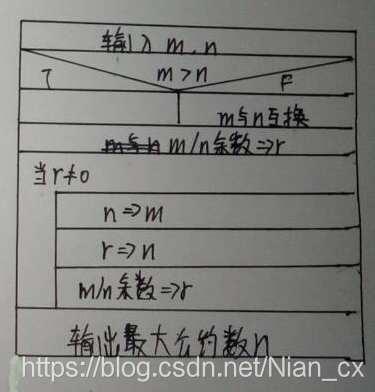 输入 m, n
m > n
T
F
m与n互换
m与n m/n余数⇒r
当r≠0
n⇒m
r⇒n
m/n余数⇒r
输出最大公约数n
https://blog.csdn.net/Nian_cx